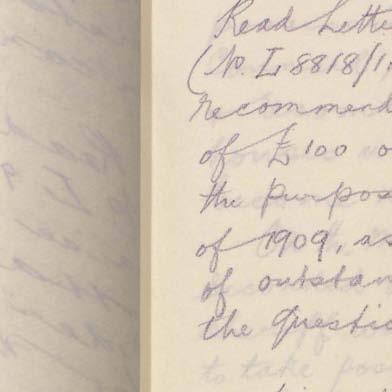 Read Lette
(N. L 8818/1
recommend
of £100 o
the purpos
of 1909, as
of outstan
the questio
to take pos